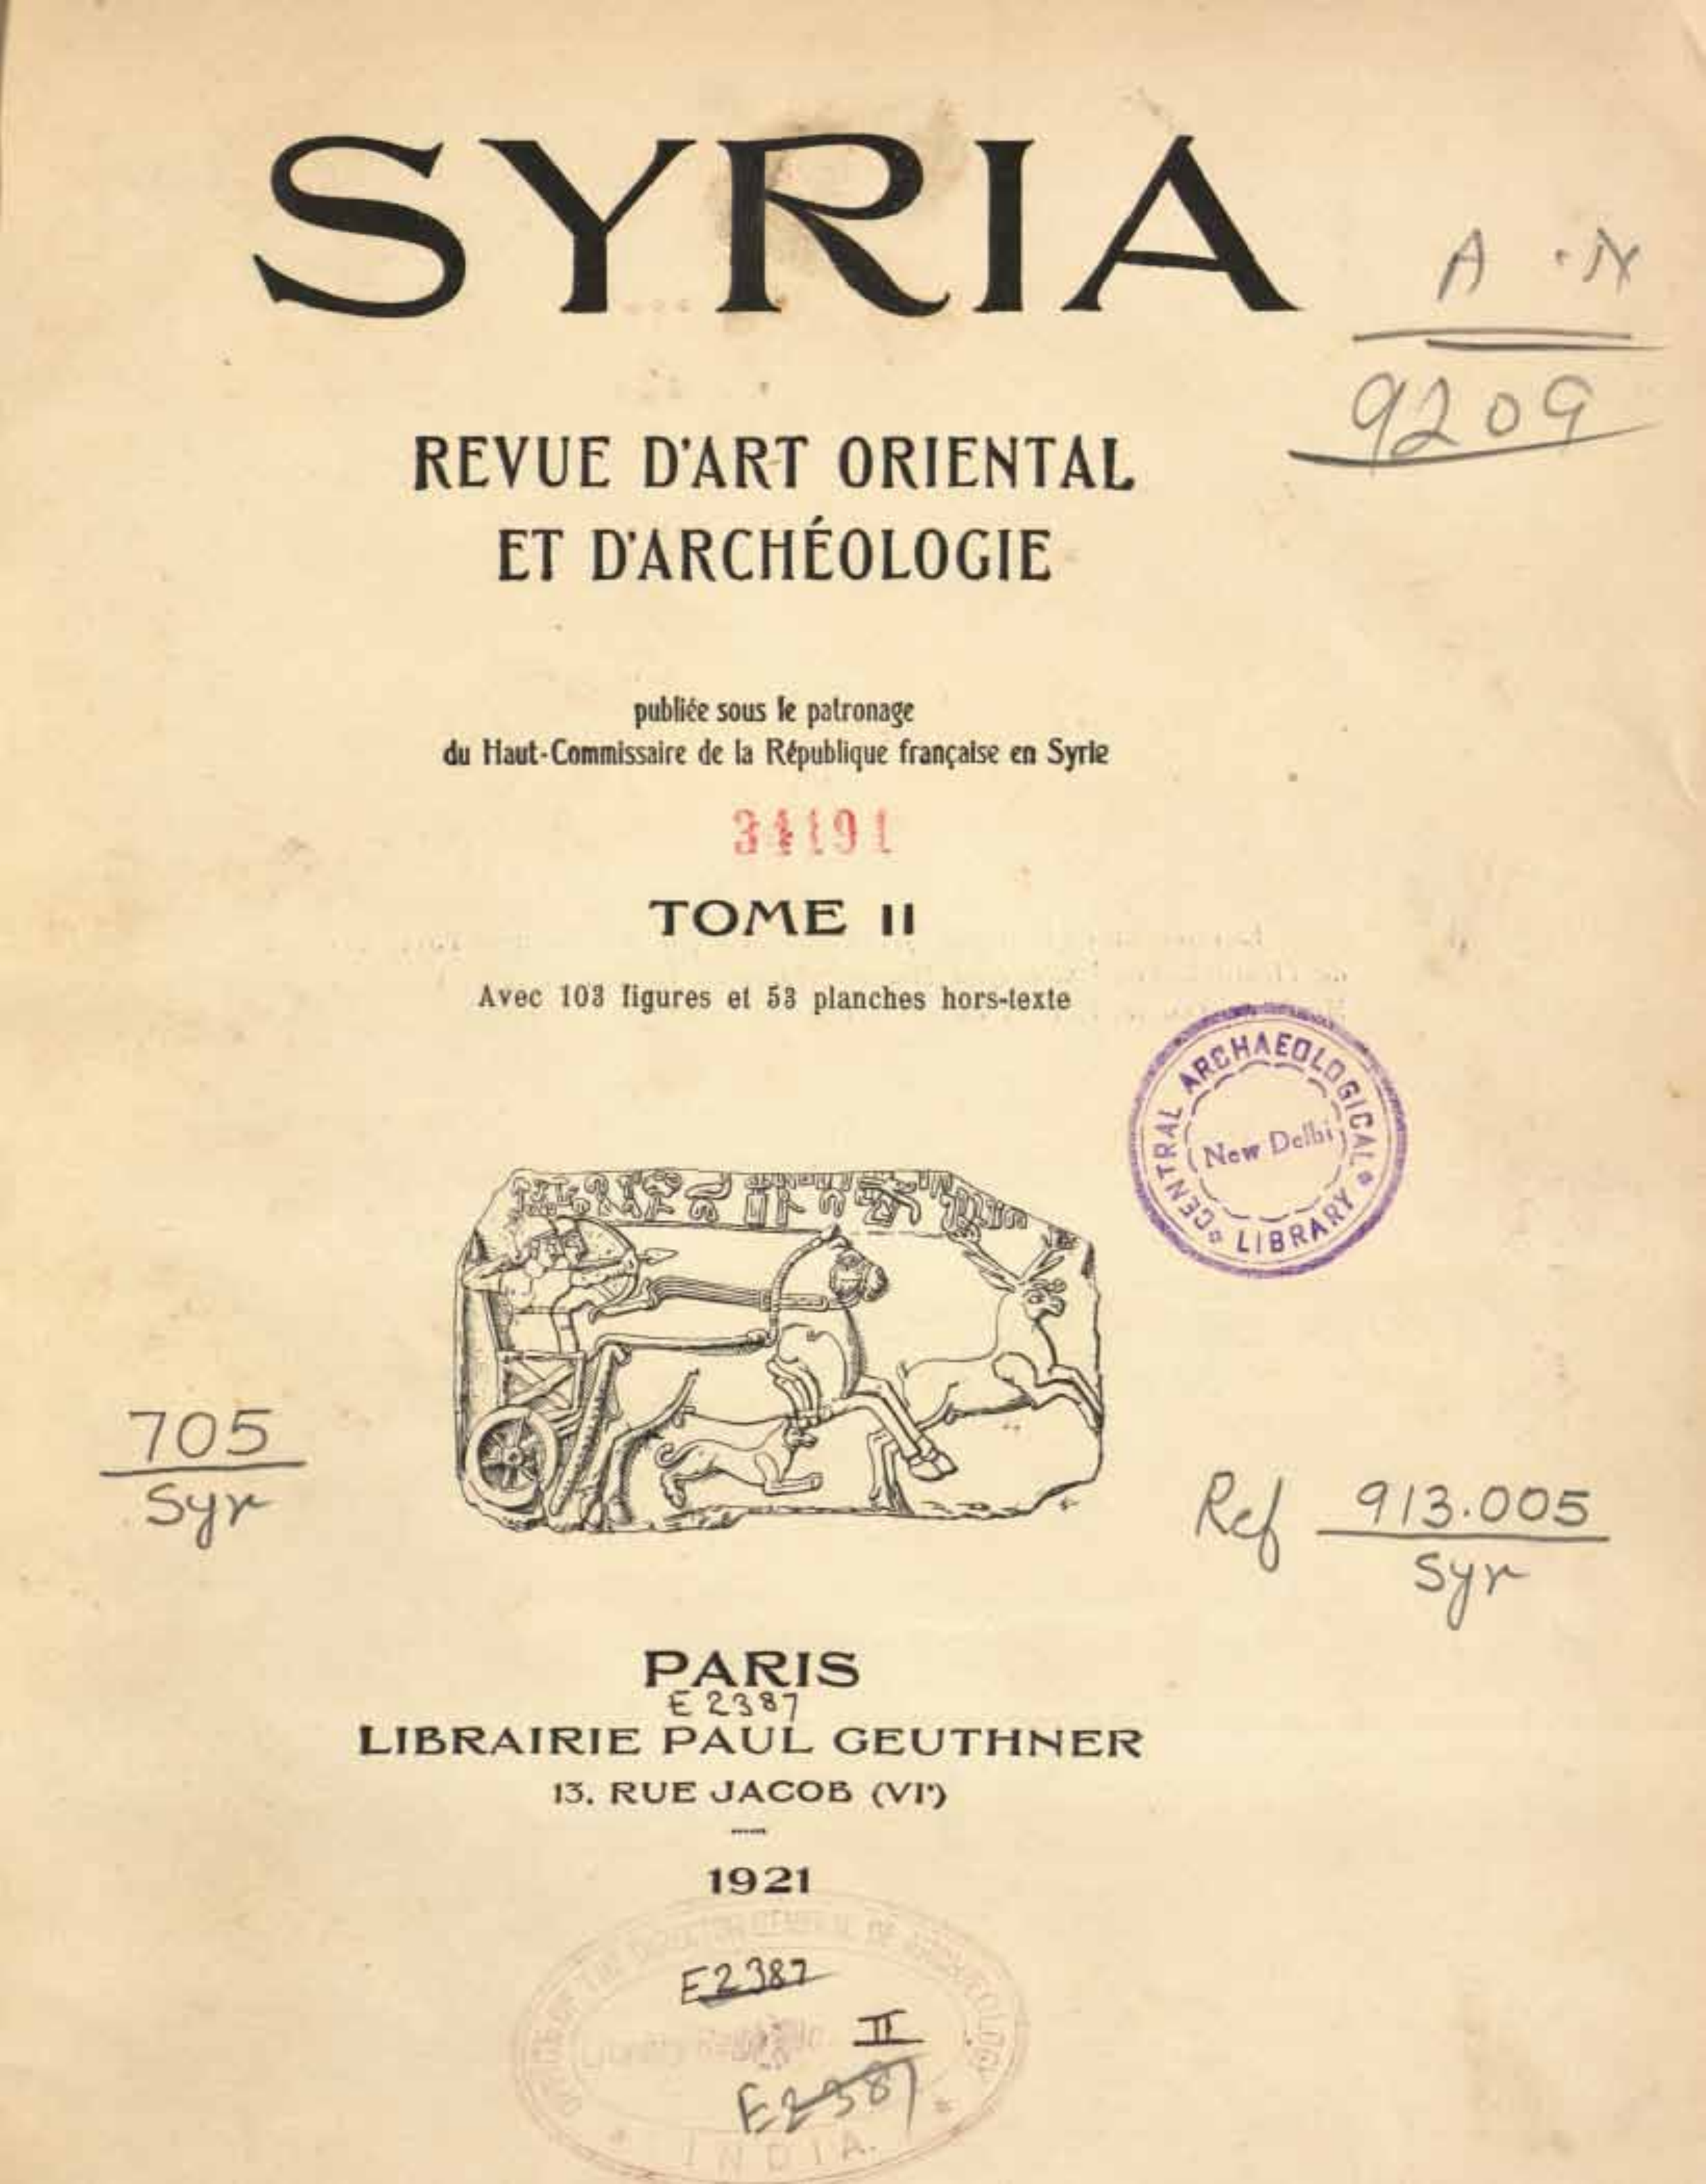 SYRIA
A . N
9209
REVUE D'ART ORIENTAL
ET D'ARCHÉOLOGIE
publiée sous le patronage
du Haut-Commissaire de la République française en Syrie
34191
TOME II
Avec 103 figures et 53 planches hors-texte
CENTRAL ARCHAEOLOGICAL
LIBRARY
New Delhi
705
Syr
Ref 913.005
Syr
PARIS
E 2387
LIBRAIRIE PAUL GEUTHNER
13, RUE JACOB (VIᵉ)
1921
OFFICE OF THE DIRECTOR GENERAL OF ARCHAEOLOGY
E2387
II
E2387
INDIA.